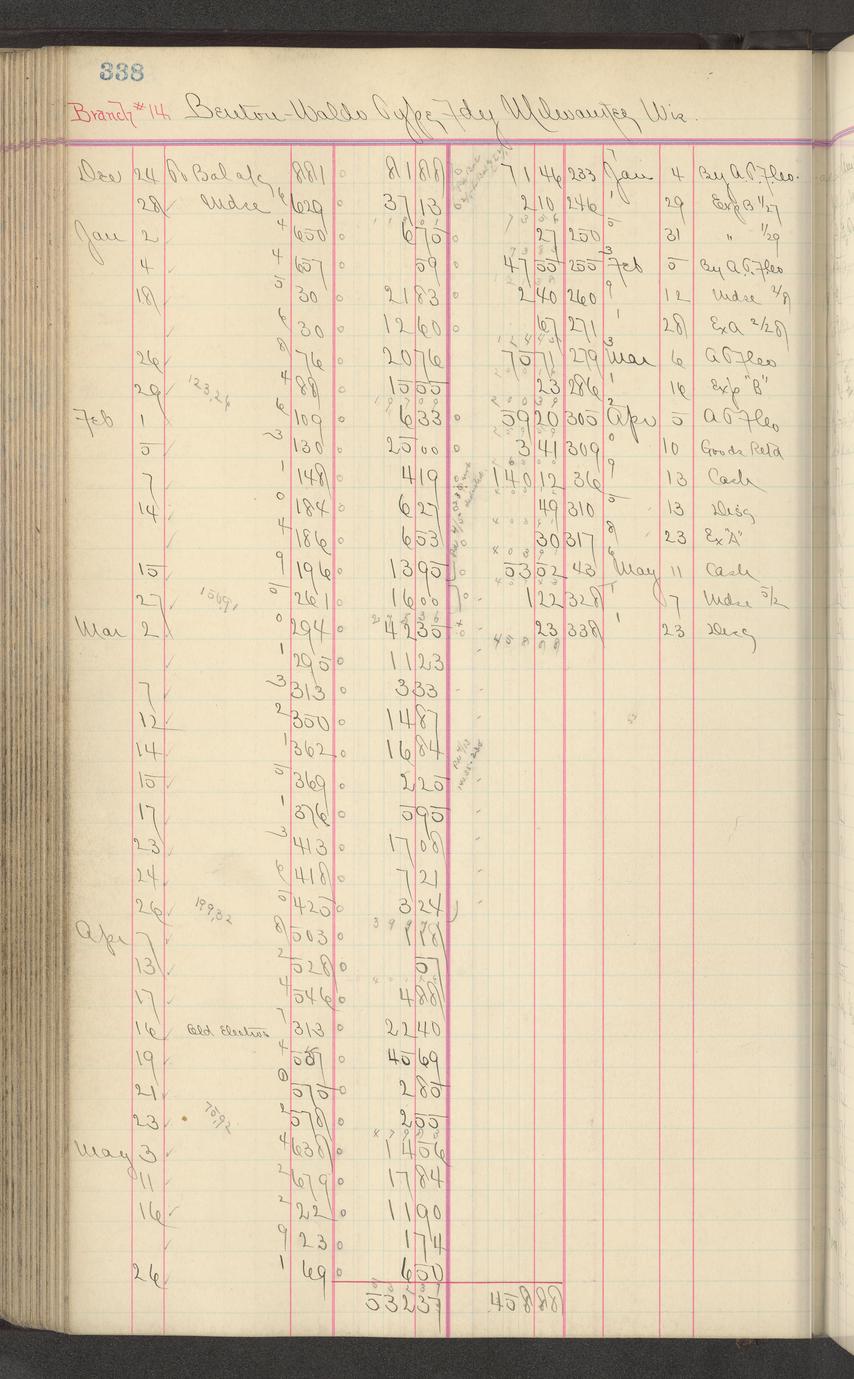 338
Branch #14. Benton-Waldo Type Fdy Milwaukee, Wis.
Dec 24 To Bal a/c 881 81 88 71 46 233 Jan 4 By A.T.F.Co.
28 Mdse 6 629 37 13 2 10 246 1 29 Exp B 1/27
Jan 2 4 650 6 75 27 250 5 31 " 1/29
4 4 657 59 47 55 255 3 Feb 5 By A.T.F.Co
18 5 30 21 83 2 40 260 9 12 Mdse 2/8
6 30 12 60 67 271 1 28 Ex A 2/28
26 8 76 20 76 75 71 279 3 Mar 6 A T F Co
29 123,26 4 88 15 55 23 286 1 16 Exp "B"
Feb 1 6 109 6 33 59 20 305 2 Apr 5 A T F Co
5 3 130 25 00 3 41 309 0 10 Goods Retd
7 1 148 4 19 140 12 36 9 13 Cash
14 0 184 6 27 49 310 5 13 Disc
4 186 6 53 30 317 8 23 Ex "A"
15 9 196 13 95 53 52 43 6 May 11 Cash
27 5 261 16 00 1 22 328 1 7 Mdse 5/2
Mar 2 0 294 42 35 23 338 1 23 Disc
1 295 11 23
7 3 313 3 33
12 2 350 14 87
14 1 362 16 84
15 5 369 2 25
17 1 376 5 95
23 3 413 17 08
24 6 418 7 21
26 199,32 5 425 3 24
Apr 7 8 503 1 18
13 2 528 57
17 4 546 4 88
16 Old Electros 7 313 22 40
19 4 557 45 69
21 0 575 2 85
23 75,92 2 578 2 55
May 3 4 638 14 56
11 2 679 17 84
16 2 22 11 90
9 23 1 74
26 1 69 6 50
532 37 458 88